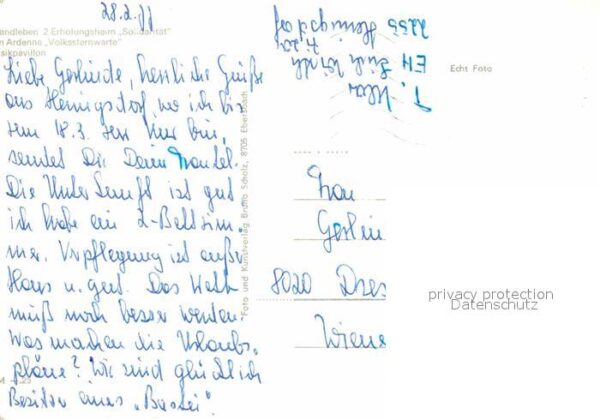 28.2.77
andleben 2 Erholungsheim „Solidarität"
n Ardenne „Volkssternwarte"
sikpavillon
Liebe Gerlinde, herzliche Grüße
aus Heringsdorf, wo ich bis
zum 18.3. zur Kur bin,
sendet Dir Deine
Die Unterkunft ist gut
ich habe ein 2-Bettzim-
mer. Verpflegung ist außer
Haus u. gut. Das Wett
muß noch besser werden.
Was machen die Urlaubs-
pläne? Wir sind glücklich
Besitzer eines „Bastei".
M -,25
Foto und Kunstverlag Bruno Scholz, 8705 Ebersbach
EH
2255
Heringsdorf
Echt Foto
Frau
Gerlin
8020 Dres
Wiene
privacy protection
Datenschutz